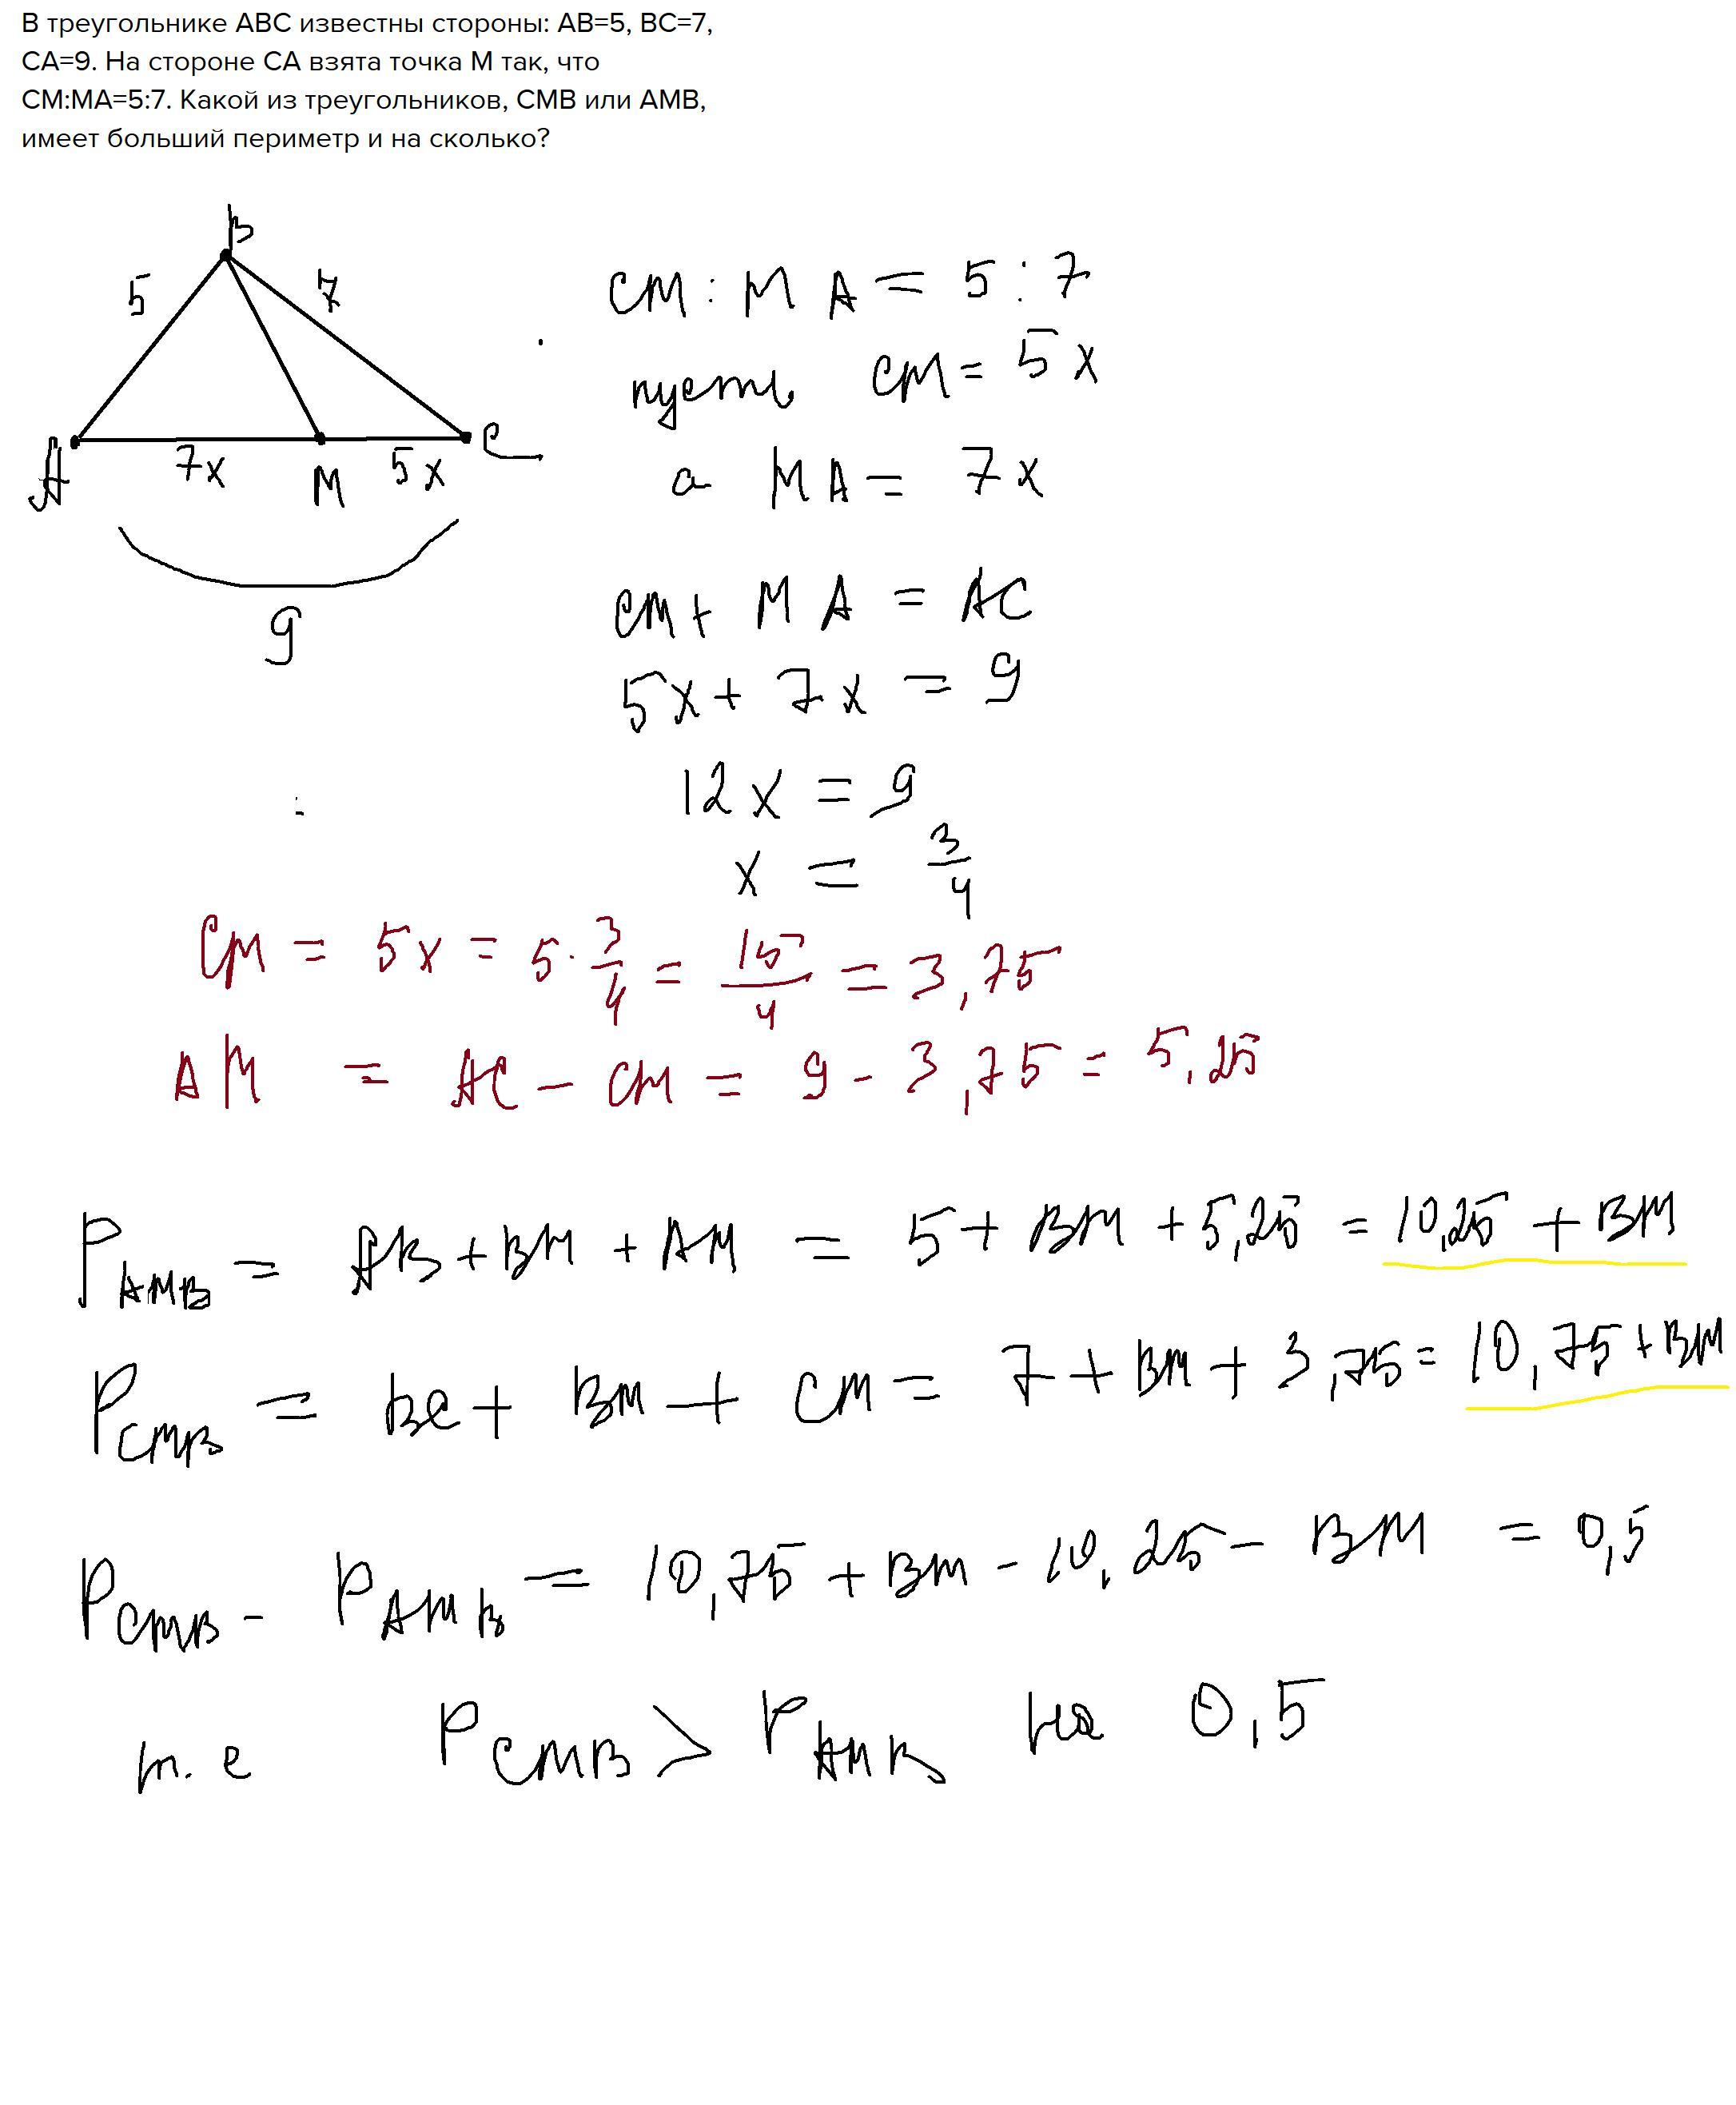 В треугольнике АВС известны стороны: АВ=5, ВС=7,
СА=9. На стороне СА взята точка М так, что
СМ:МА=5:7. Какой из треугольников, СМВ или АМВ,
имеет больший периметр и на сколько?
B
5 7
A 7x M 5x C
9
CM : MA = 5 : 7
пусть CM = 5x
а MA = 7x
CM + MA = AC
5x + 7x = 9
12x = 9
x = 3/4
CM = 5x = 5 · 3/4 = 15/4 = 3,75
AM = AC - CM = 9 - 3,75 = 5,25
P AMB = AB + BM + AM = 5 + BM + 5,25 = 10,25 + BM
P CMB = BC + BM + CM = 7 + BM + 3,75 = 10,75 + BM
P CMB - P AMB = 10,75 + BM - 10,25 - BM = 0,5
т.е P CMB > P AMB на 0,5